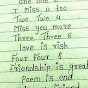 one one 1
I Miss u too
Two Two 2
Miss you more
Three Three 3
love is risk
Four Four 4
Friendship is great
Poem is end